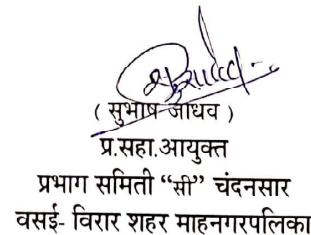 ( सुभाष जाधव )
प्र.सहा.आयुक्त
प्रभाग समिती “सी” चंदनसार
वसई- विरार शहर माहनगरपलिका